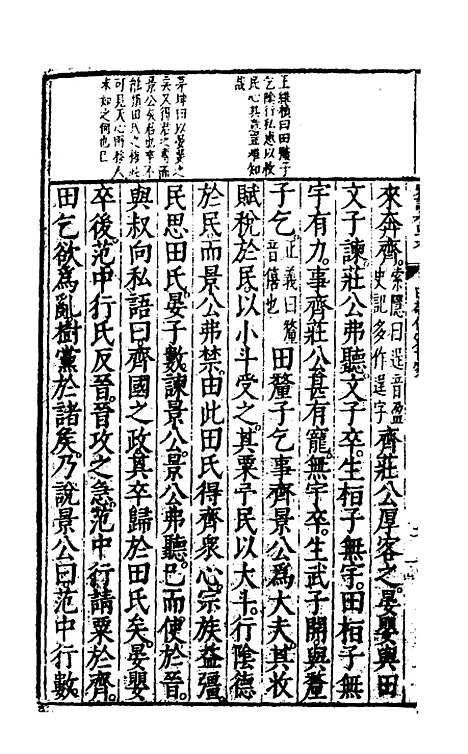 王維楨曰田釐子
乞陰行私惠以收
民心其意豈難知
哉
茅坤曰以晏嬰之
又得君之專而
景公君也卒不
能田氏之
可見天心所授人
末如之何也已
來奔齊。索隱曰逞音盈史記多作逞字齊莊公厚客之。晏嬰與田
文子諫。莊公弗聽。文子卒。生桓子無宇。田桓子無
宇有力。事齊莊公甚有寵。無宇卒。生武子開與釐
子乞。正義曰釐音僖也 田釐子乞事齊景公為大夫。其收
賦稅於民以小斗受之。其粟予民以大斗。行陰德
於民。而景公弗禁。由此田氏得齊眾心。宗族益彊。
民思田氏。晏子數諫景公。景公弗聽。已而使於晉。
與叔向私語曰齊國之政其卒歸於田氏矣。晏嬰
卒後。范中行氏反晉。晉攻之急。范中行請粟於齊。
田乞欲爲亂樹黨於諸侯。乃說景公曰范中行數